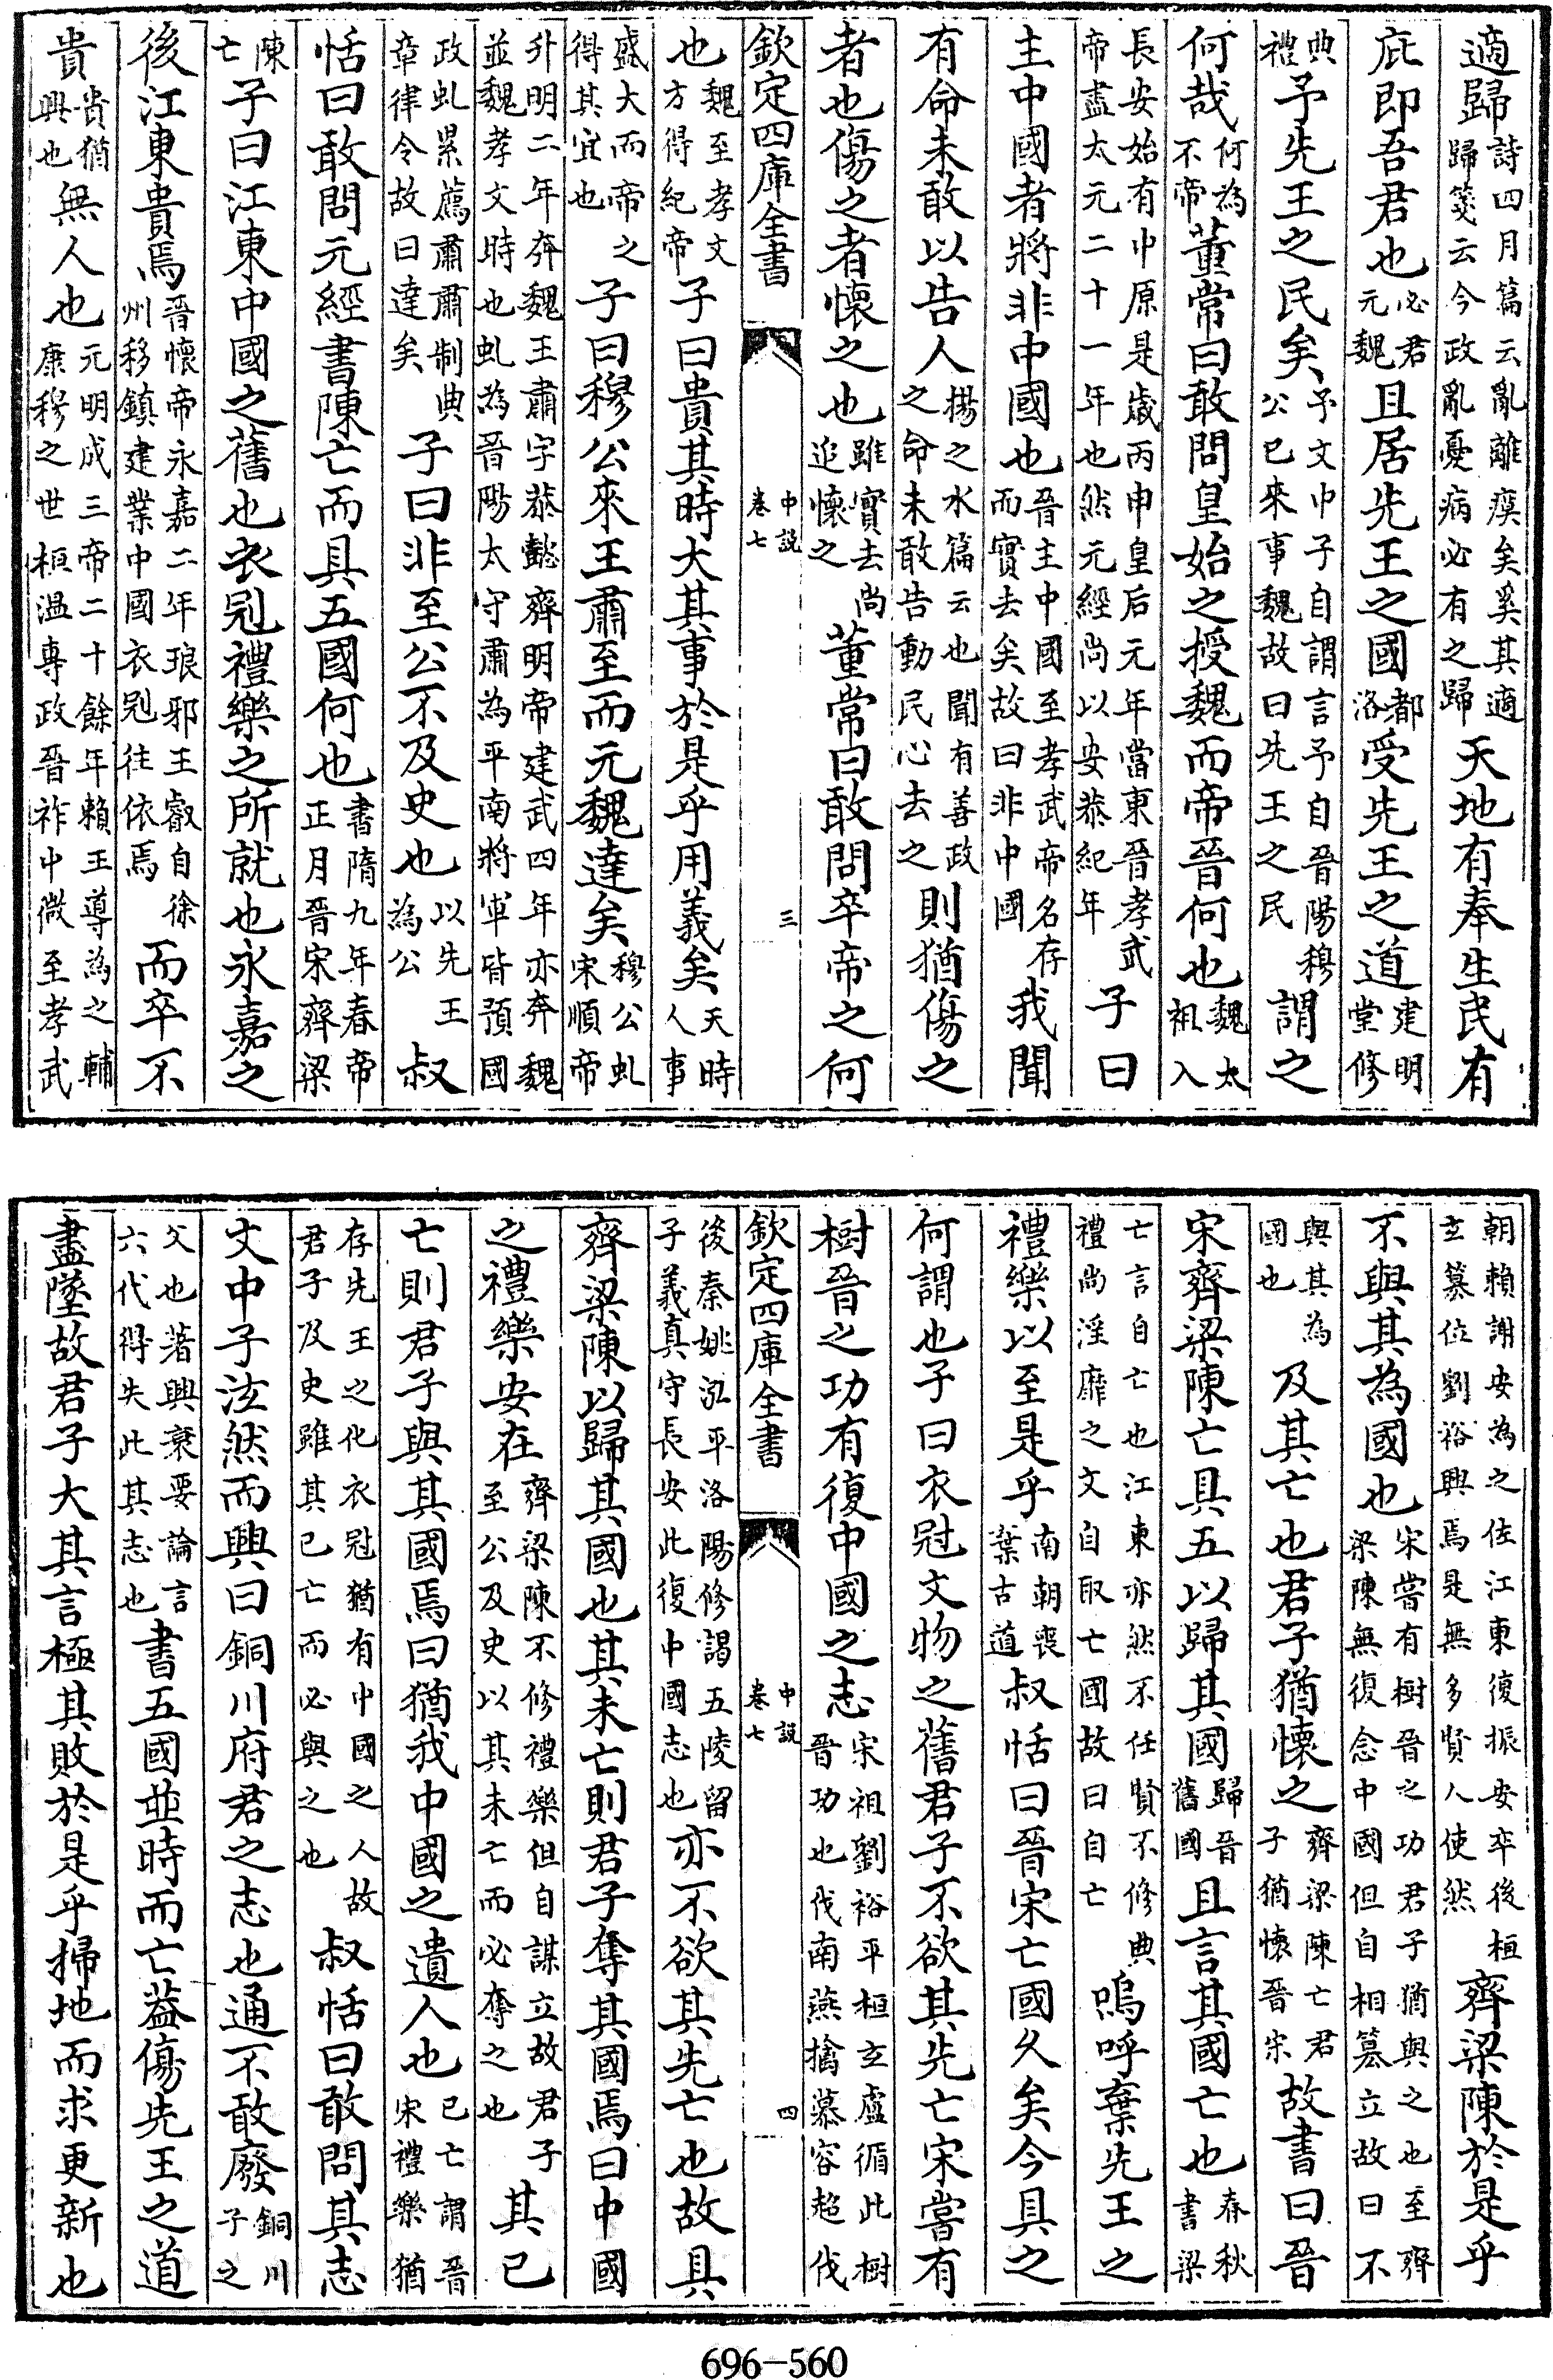 適歸詩四月篇云亂離瘼矣奚其適歸箋云今政亂憂病必有之歸天地有奉生民有
庇即吾君也必君元魏且居先王之國都洛受先王之道建明堂修
典禮予先王之民矣予文中子自謂言予自晉陽穆公已來事魏故曰先王之民謂之
何哉何為不帝董常曰敢問皇始之授魏而帝晉何也魏太祖入
長安始有中原是歲丙申皇后元年當東晉孝武帝盡太元二十一年也然元經尚以安恭紀年子曰
主中國者將非中國也晉主中國至孝武帝名存而實去矣故曰非中國我聞
有命未敢以告人揚之水篇云也聞有善政之命未敢告動民心去之則猶傷之
者也傷之者懷之也雖實去尚追懷之董常曰敢問卒帝之何
欽定四庫全書 中說 卷七 三
也魏至孝文方得紀帝子曰貴其時大其事於是乎用義矣天時人事
盛大而帝之得其宜也子曰穆公來王肅至而元魏達矣穆公虬宋順帝
升明二年奔魏王肅字恭懿齊明帝建武四年亦奔魏並魏孝文時也虬為晉陽太守肅為平南將軍皆預國
政虬累薦肅肅制典章律令故曰達矣子曰非至公不及史也以先王為公叔
恬曰敢問元經書陳亡而具五國何也書隋九年春帝正月晉宋齊梁
陳亡子曰江東中國之舊也衣冠禮樂之所就也永嘉之
後江東貴焉晉懷帝永嘉二年琅邪王叡自徐州移鎮建業中國衣冠往依焉而卒不
貴貴猶興也無人也元明成三帝二十餘年賴王導為之輔康穆之世桓溫專政晉祚中微至孝武
朝賴謝安為之佐江東復振安卒後桓玄篡位劉裕興焉是無多賢人使然齊梁陳於是乎
不與其為國也宋嘗有樹晉之功君子猶與之也至齊梁陳無復念中國但自相篡立故曰不
與其為國也及其亡也君子猶懷之齊梁陳亡君子猶懷晉宋故書曰晉
宋齊梁陳亡具五以歸其國歸晉舊國且言其國亡也春秋書梁
亡言自亡也江東亦然不任賢不修典禮尚淫靡之文自取亡國故曰自亡嗚呼棄先王之
禮樂以至是乎南朝喪棄古道叔恬曰晉宋亡國久矣今具之
何謂也子曰衣冠文物之舊君子不欲其先亡宋嘗有
樹晉之功有復中國之志宋祖劉裕平桓玄盧循此樹晉功也伐南燕擒慕容超伐
欽定四庫全書 中說 卷七 四
後秦姚泓平洛陽修謁五陵留子義真守長安此復中國志也亦不欲其先亡也故具
齊梁陳以歸其國也其未亡則君子奪其國焉曰中國
之禮樂安在齊梁陳不修禮樂但自謀立故君子至公及史以其未亡而必奪之也其已
亡則君子與其國焉曰猶我中國之遺人也已亡謂晉宋禮樂猶
存先王之化衣冠猶有中國之人故君子及史雖其已亡而必與之也叔恬曰敢問其志
文中子泫然而興曰銅川府君之志也通不敢廢銅川子之
父也著興衰要論言六代得失此其志也書五國並時而亡蓋傷先王之道
盡墜故君子大其言極其敗於是乎掃地而求更新也
696-560